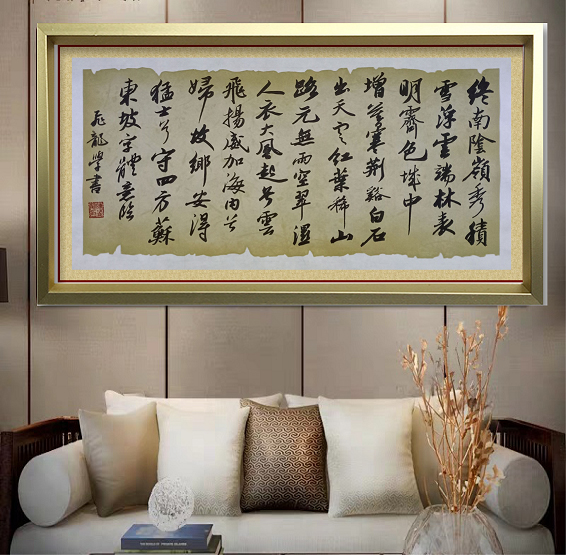 終南陰嶺秀積
雪浮雲端林表
明霽色城中
增暮寒荆谿白石
出天寒红葉稀山
路元無雨空翠濕
人衣大風起兮雲
飛揚威加海内兮
歸故鄉安得
猛士兮守四方蘇
東坡字體意臨
龍學書